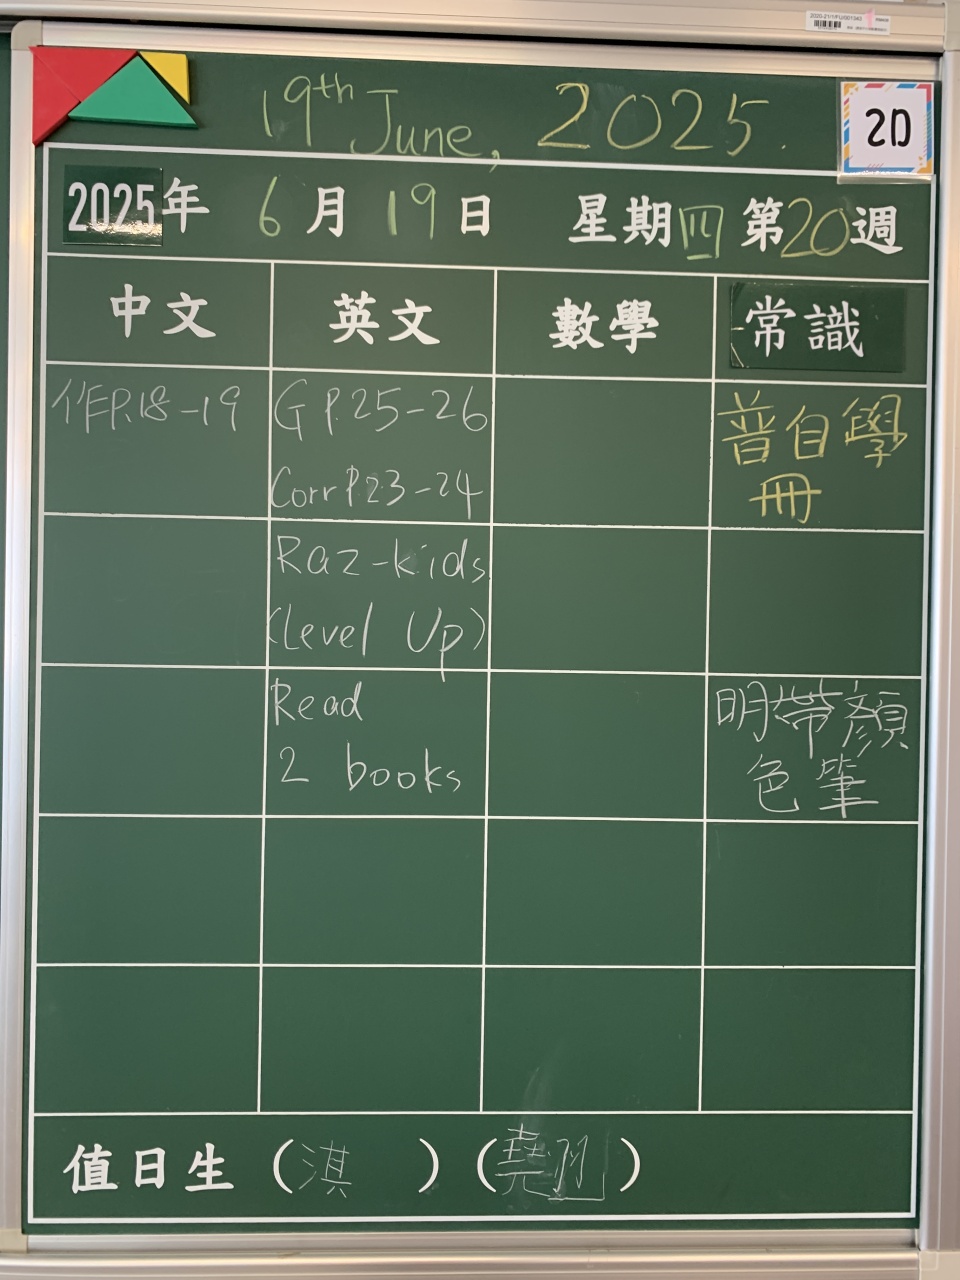 2020-21/1/FU/001343
19th June, 2025.
2D
2025年 6月19日 星期四 第20週
中文 英文 數學 常識
作P.18-19
G P.25-26
Corr P.23-24
普自學
冊
Raz-kids
(Level Up)
Read
2 books
明帶顏
色筆
值日生 (淇 ) ( )